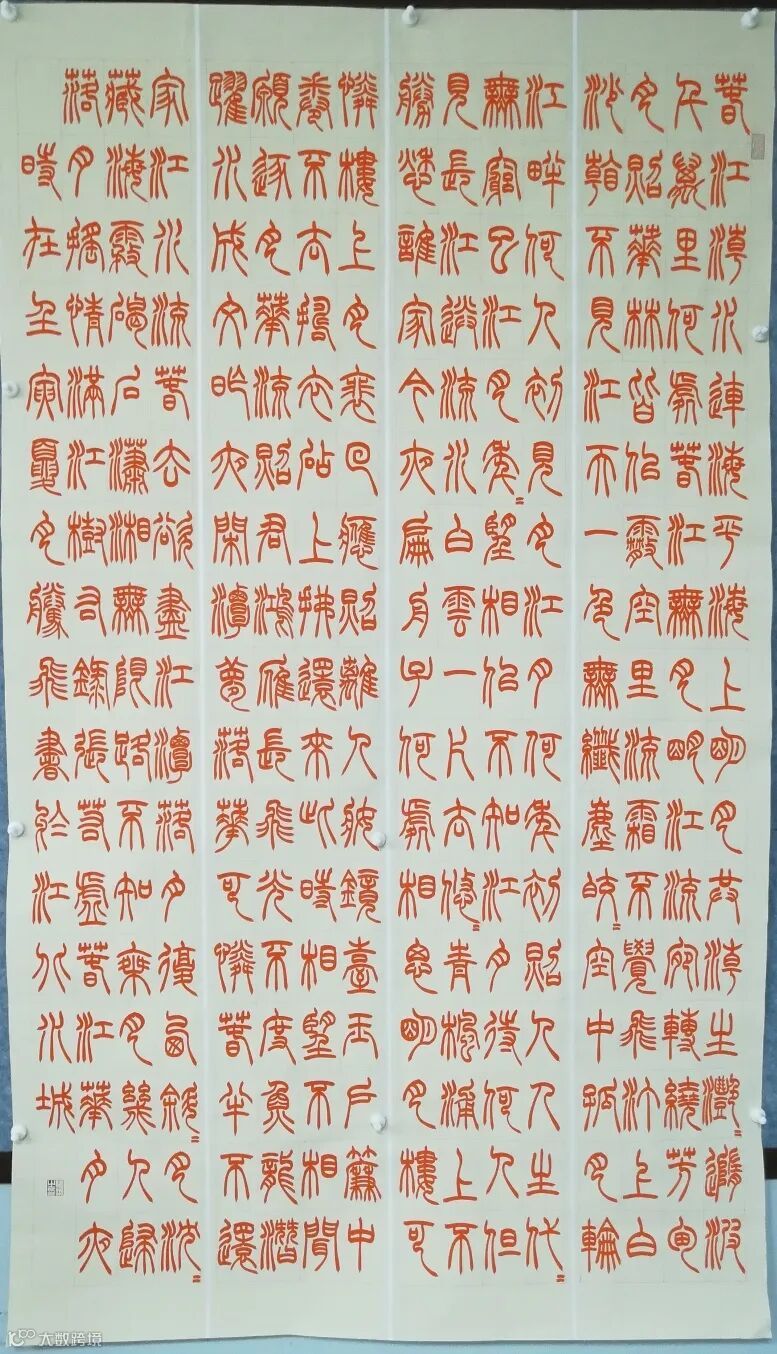 春江潮水連海平海上明月共潮生灩〻隨波
千萬里何處春江無月明江流宛轉繞芳甸
月照華林皆似霰空里流霜不覺飛汀上白
沙看不見江天一色無纖塵皎〻空中孤月輪
江畔何人初見月江月何年初照人人生代〻
無窮已江月年〻望相似不知江月待何人但
見長江送流水白雲一片去悠〻青楓浦上不
勝愁誰家今夜扁舟子何處相思明月樓可
憐樓上月裴回應照離人妝鏡臺玉戶簾中
卷不去搗衣砧上拂還來此時相望不相聞
願逐月華流照君鴻雁長飛光不度魚龍潛
躍水成文昨夜閑潭夢落華可憐春半不還
家江水流春去欲盡江潭落月復西斜〻月沈〻
藏海霧碣石瀟湘無限路不知乘月幾人歸
落月搖情滿江樹右錄張若虛春江華月夜
時在壬寅夏月騰飛書於江北水城
大数跨境